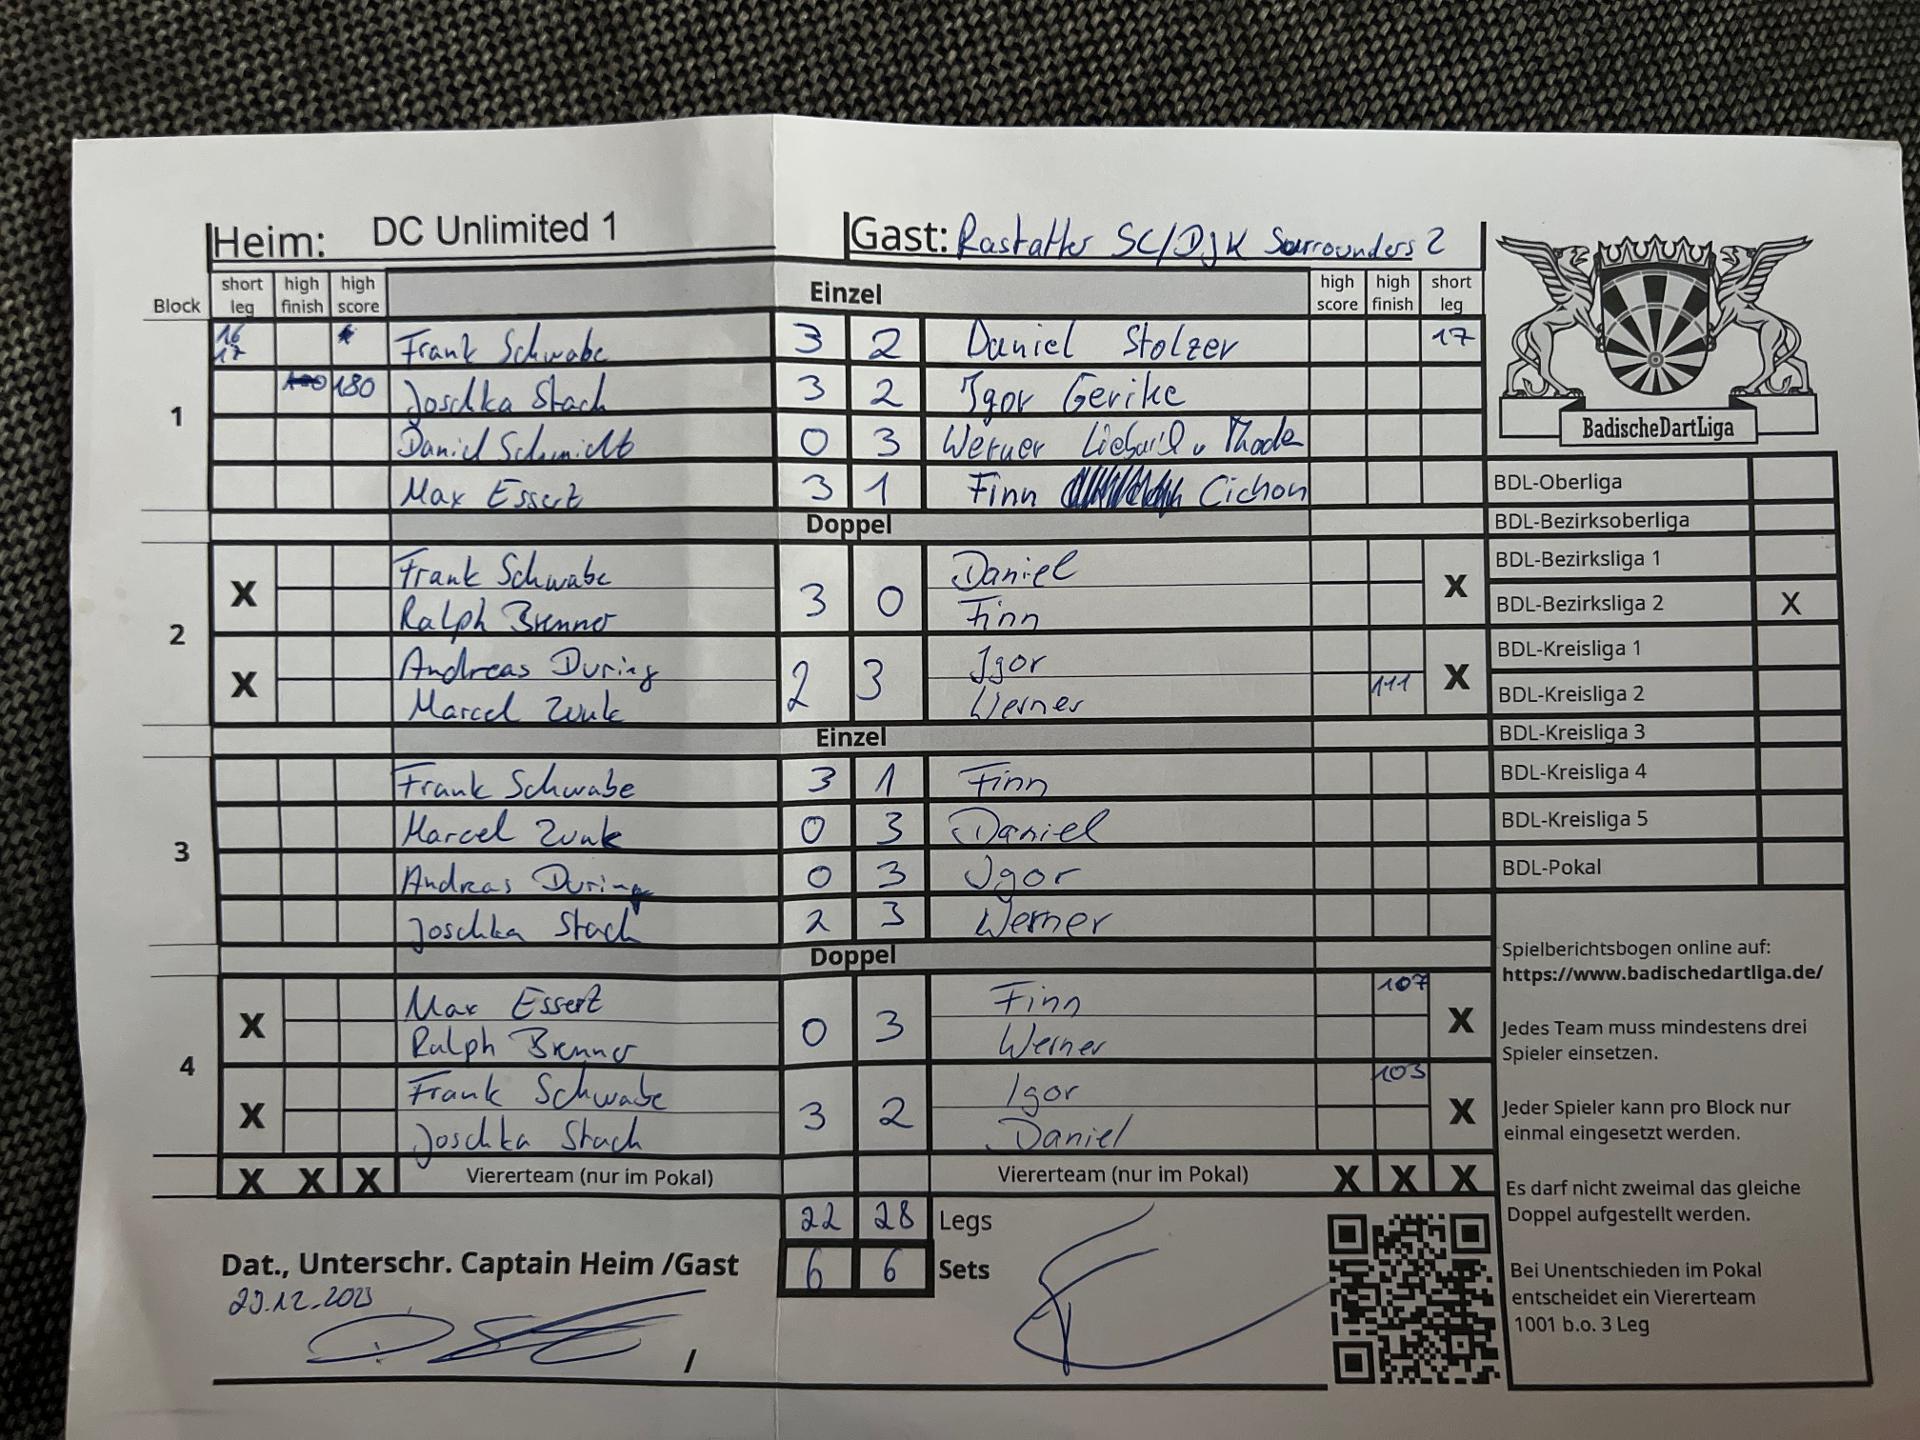 Heim: DC Unlimited 1 Gast: Rastatter SC/DJK Sourrounders 2
Block short leg high finish high score Einzel high score high finish short leg
1
16 17 Frank Schwabe 3 2 Daniel Stolzer 17
180 Joschka Stach 3 2 Igor Gerike
Daniel Schmidt 0 3 Werner v Thaden
Max Essert 3 1 Finn Cichon
Doppel
2
X Frank Schwabe 3 0 Daniel X
Ralph Brenner Finn
X Andreas During 2 3 Igor X
Marcel Zunk Werner 111
Einzel
3
Frank Schwabe 3 1 Finn
Marcel Zunk 0 3 Daniel
Andreas During 0 3 Igor
Joschka Stach 2 3 Werner
Doppel
4
X Max Essert 0 3 Finn 107 X
Ralph Brenner Werner
X Frank Schwabe 3 2 Igor 103 X
Joschka Stach Daniel
X X X Viererteam (nur im Pokal) Viererteam (nur im Pokal) X X X
22 28 Legs
6 6 Sets
Dat., Unterschr. Captain Heim /Gast
.12.2023
/
BadischeDartLiga
BDL-Oberliga
BDL-Bezirksoberliga
BDL-Bezirksliga 1
BDL-Bezirksliga 2 X
BDL-Kreisliga 1
BDL-Kreisliga 2
BDL-Kreisliga 3
BDL-Kreisliga 4
BDL-Kreisliga 5
BDL-Pokal
Spielberichtsbogen online auf:
https://www.badischedartliga.de/
Jedes Team muss mindestens drei
Spieler einsetzen.
Jeder Spieler kann pro Block nur
einmal eingesetzt werden.
Es darf nicht zweimal das gleiche
Doppel aufgestellt werden.
Bei Unentschieden im Pokal
entscheidet ein Viererteam
1001 b.o. 3 Leg